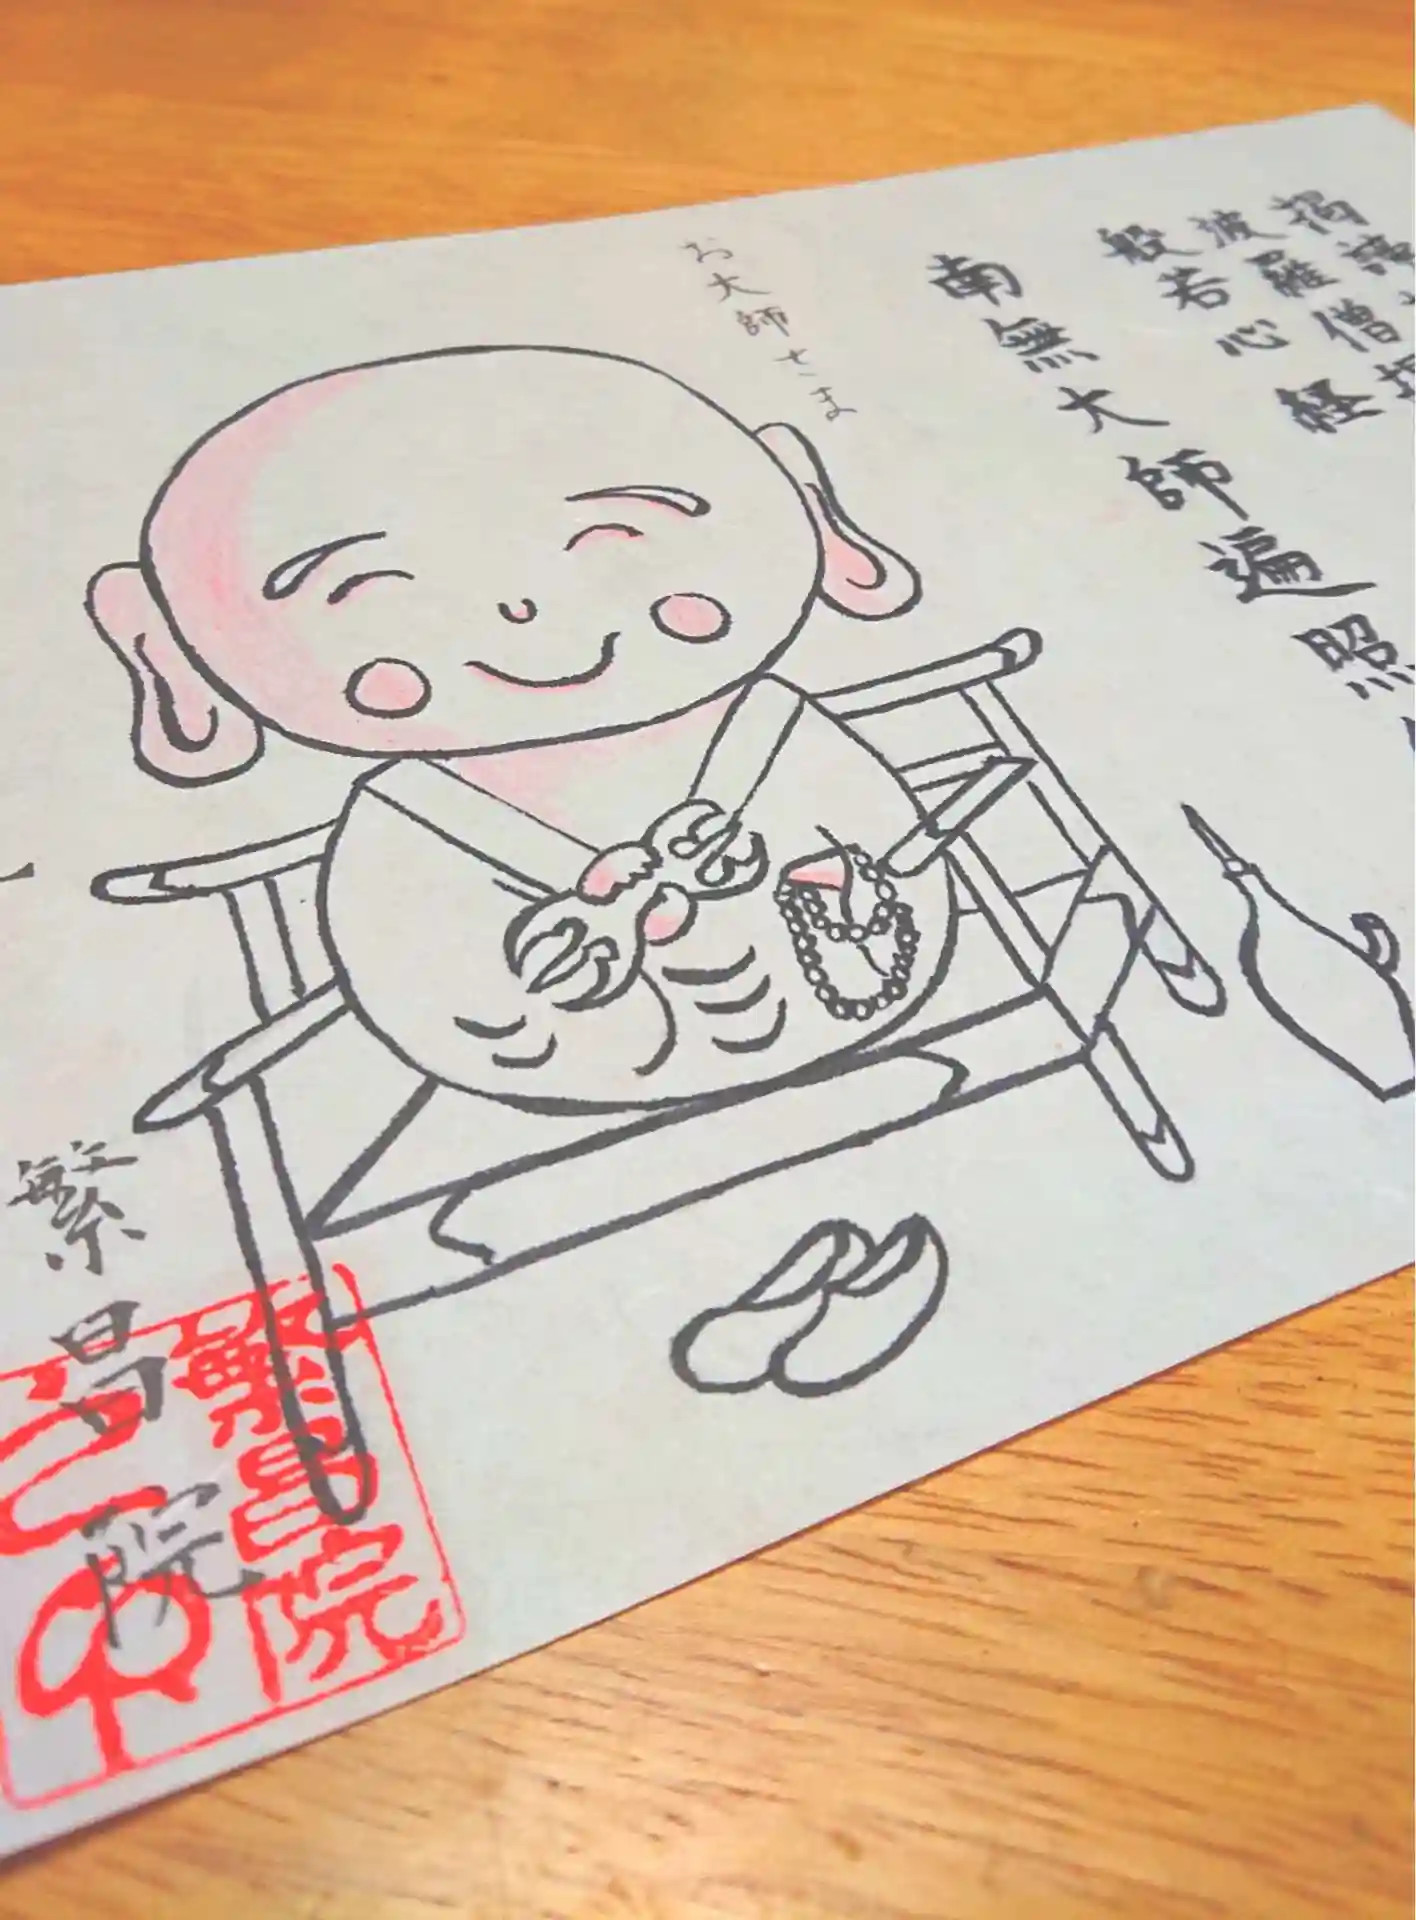 羯諦
波羅僧掲
般若心経
南無大師遍照
お大師さま
繁昌院
繁昌院